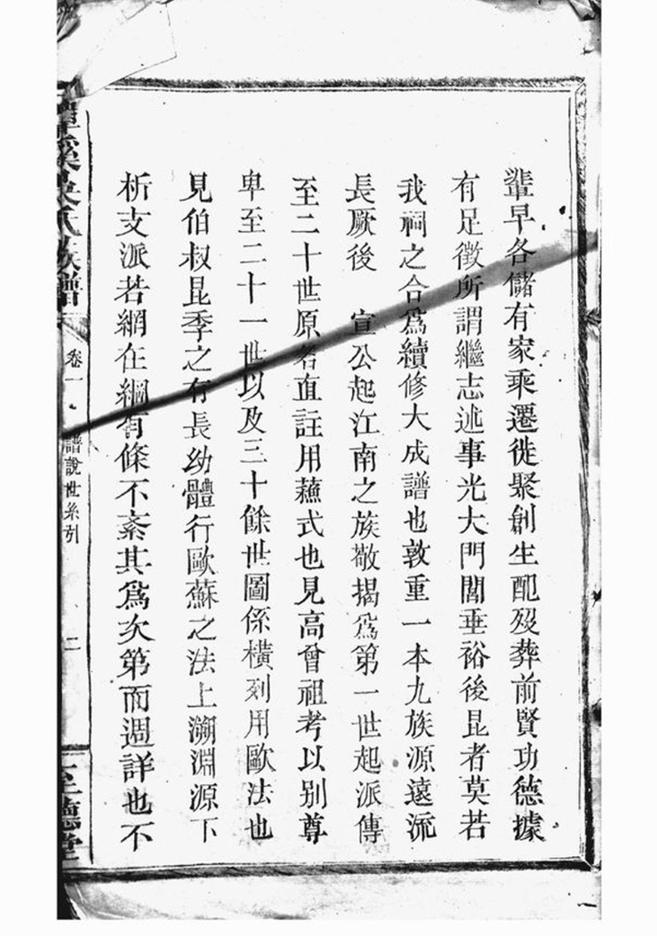 輩早各儲有家乘遷徙聚創生配歿葬前賢功德據
有足徵所謂繼志述事光大門閭垂裕後昆者莫若
我祠之合爲續修大成譜也敦重一本九族源遠流
長厥後　宣公起江南之族敬揭爲第一世起派傳
至二十世原名直註用蘓式也見高曾祖考以別尊
卑至二十一世以及三十餘世圖係橫列用歐法也
見伯叔昆季之有長幼體行歐蘇之法上溯淵源下
析支派若網在綱有條不紊其爲次第而週詳也不
溪吳氏族譜
卷一
譜說世系列
二
至德堂